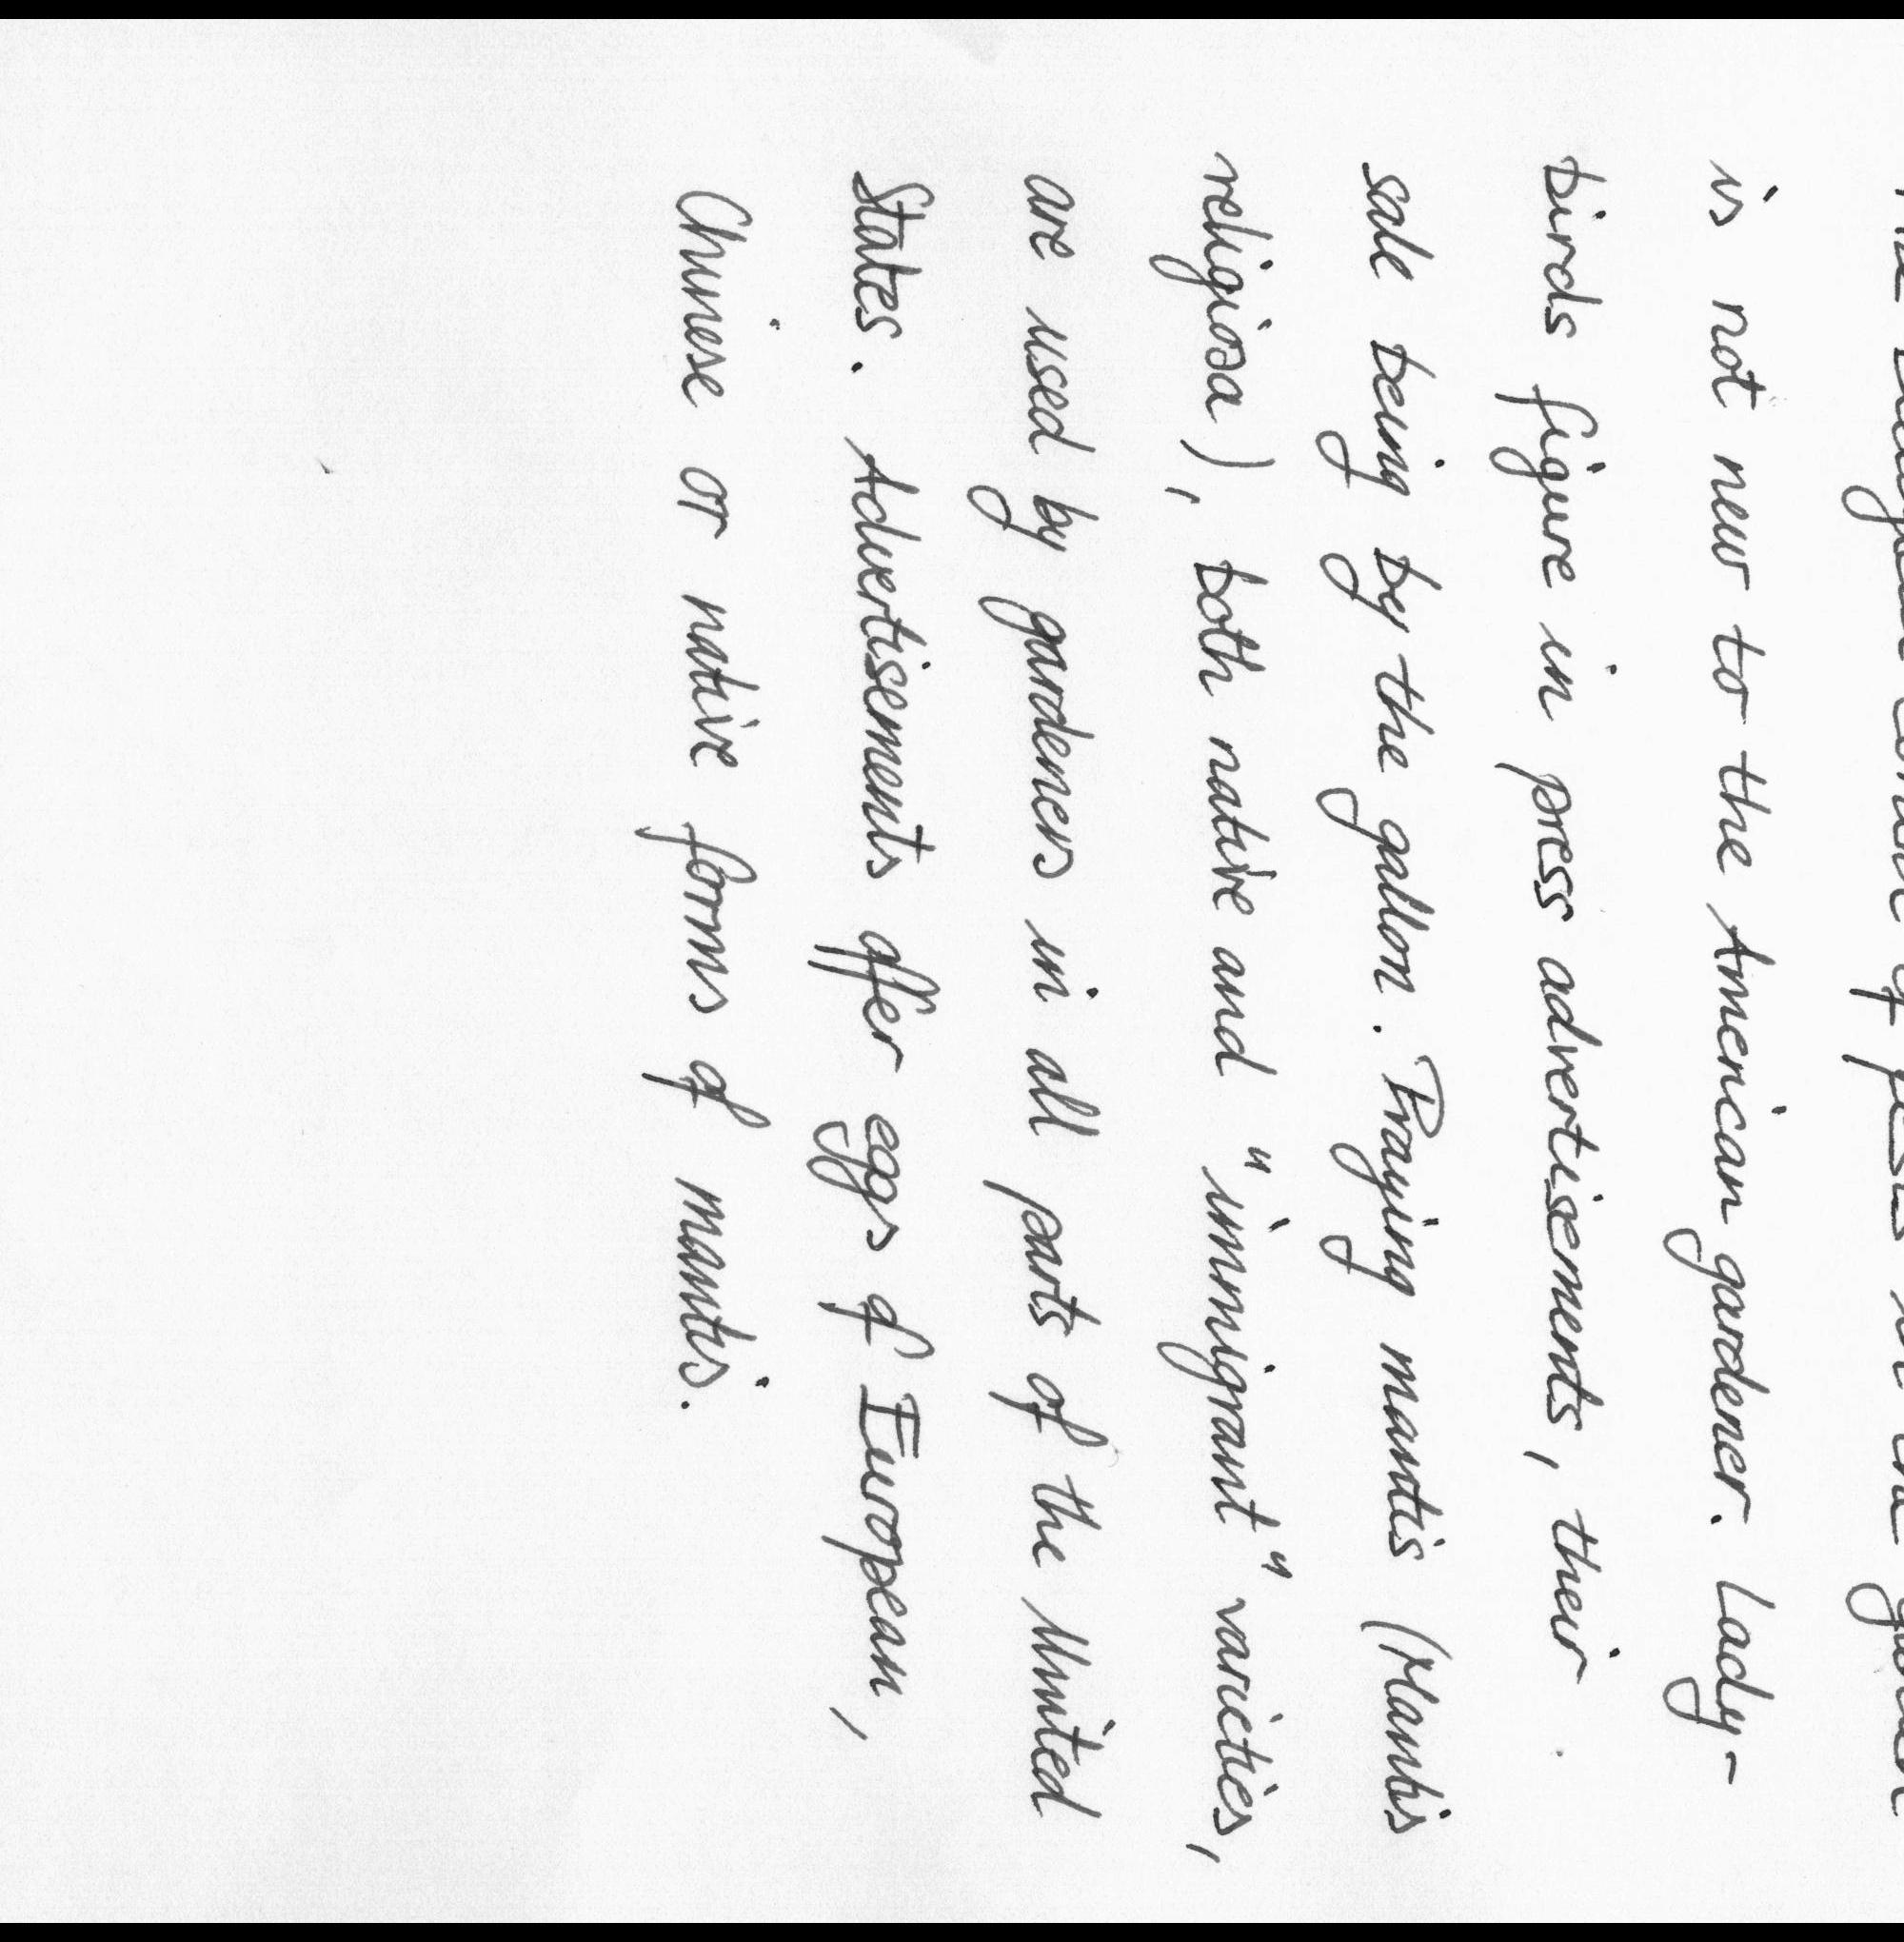 of pests in the garden
is not new to the American gardener. Lady-
birds figure in press advertisements, their
sale being by the gallon. Praying mantis (Mantis
religiosa), both native and "immigrant" varieties,
are used by gardeners in all parts of the United
States. Advertisements offer eggs of European,
Chinese or native forms of mantis.